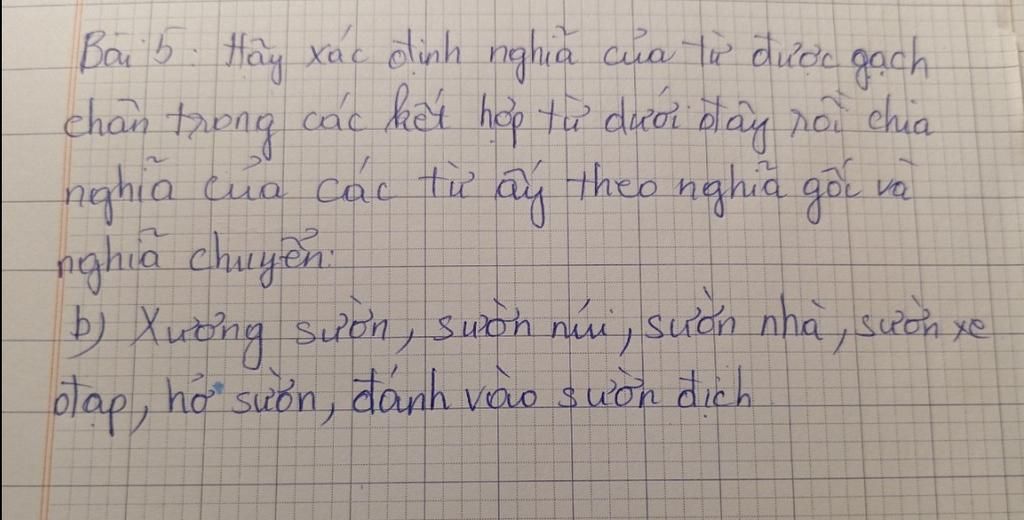 Bài 5: Hãy xác định nghĩa của từ được gạch
chân trong các kết hợp từ dưới đây rồi chia
nghĩa của các từ ấy theo nghĩa gốc và
nghĩa chuyển:
b) Xương sườn, sườn núi, sườn nhà, sườn xe
đạp, hở sườn, đánh vào sườn địch